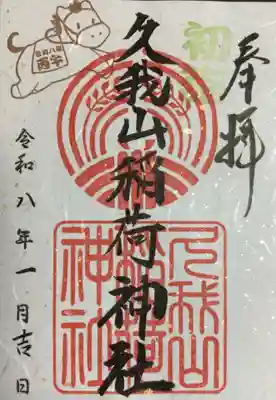 奉拝
初
久我山稲荷神社
久我山
稲荷
神社
令和八年一月吉日
令和八年
丙午